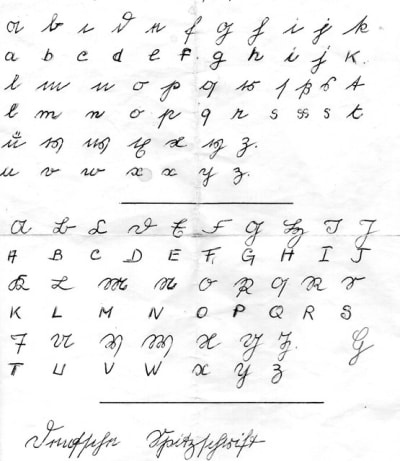 a b c d e f g h i j k
a b c d e f. g h i j K.
l m n o p q r ſ ß s t
l m n o p q r s ss s t
ŭ v w x x y z.
u v w x x y z.
A B C D E F G H I J
A B C D E F G H I J
K L M N O P Q R S
K L M N O P Q R S
T U V W X Y Z. G
T U V W X Y Z
Deutsche Spitzschrift